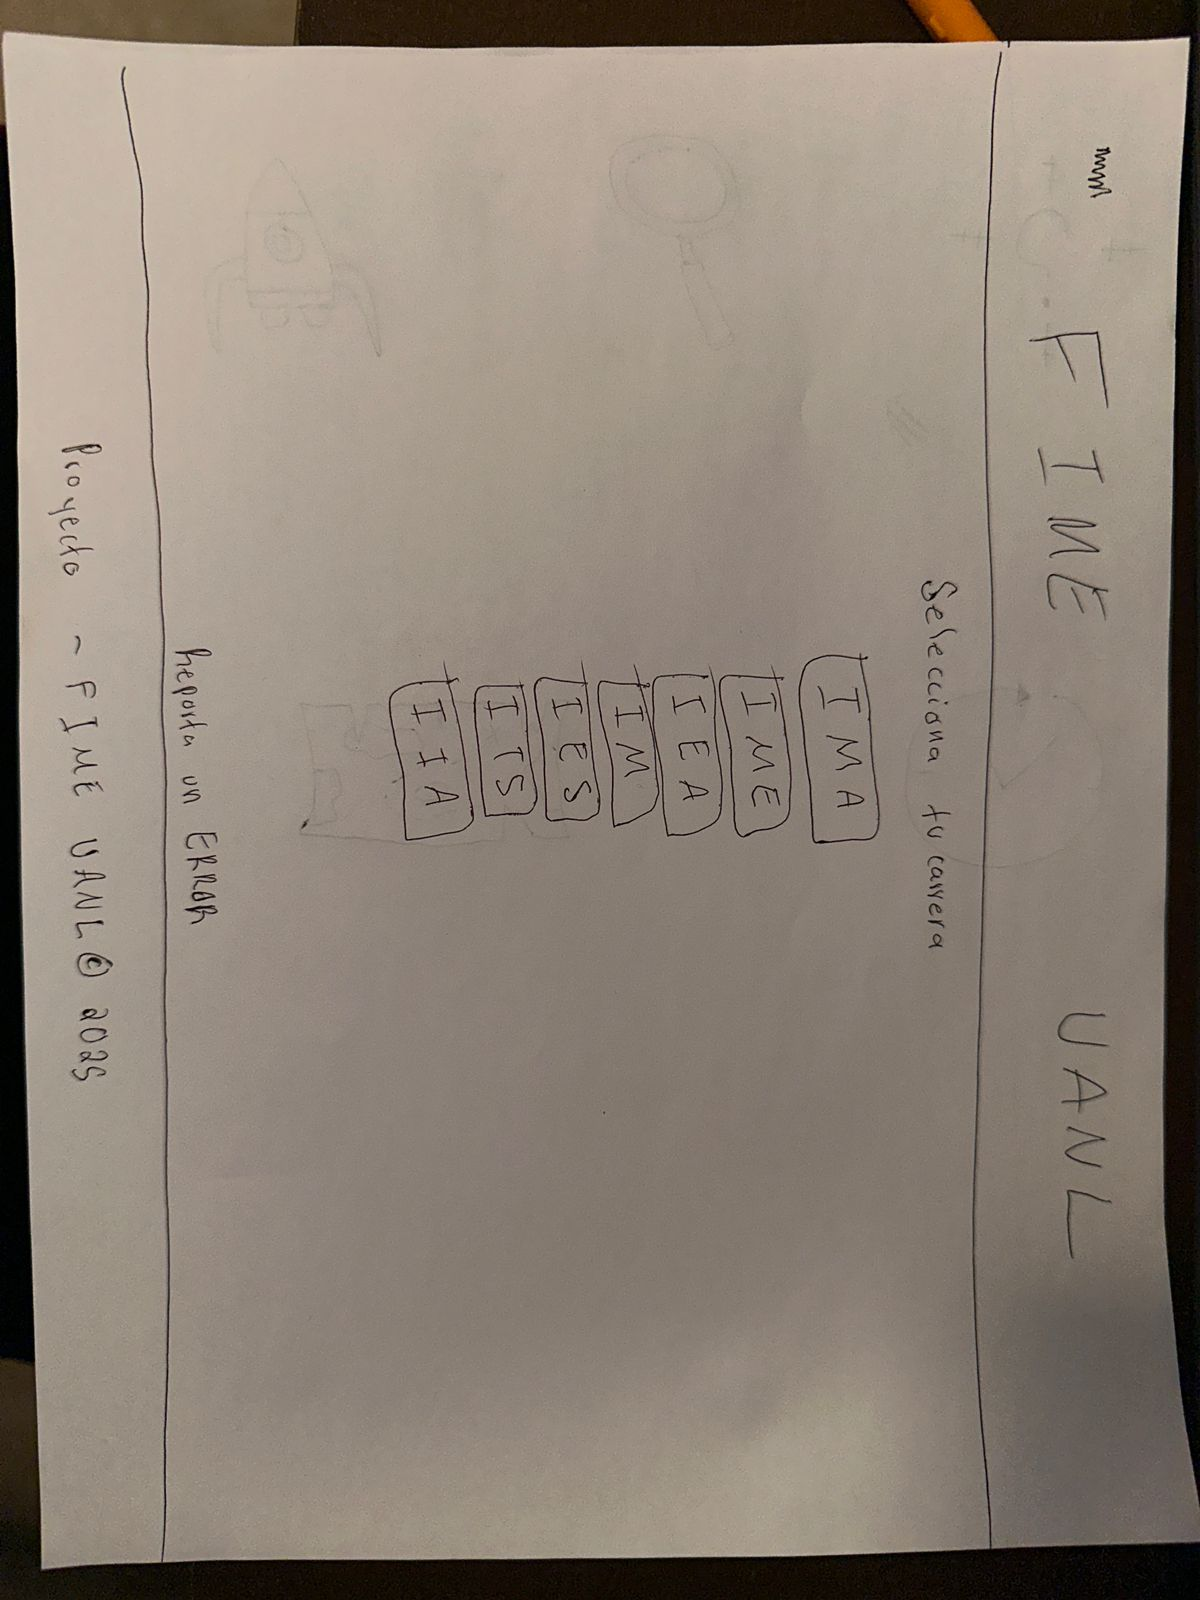 FIME UANL
Selecciona tu carrera
IMA
IME
IEA
IM
IES
ITS
IIA
Reporta un ERROR
Proyecto - FIME UANL © 2025